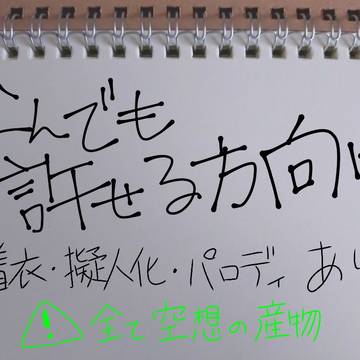 なんでも
許せる方向け
着衣・擬人化・パロディ あり
⚠全て空想の産物